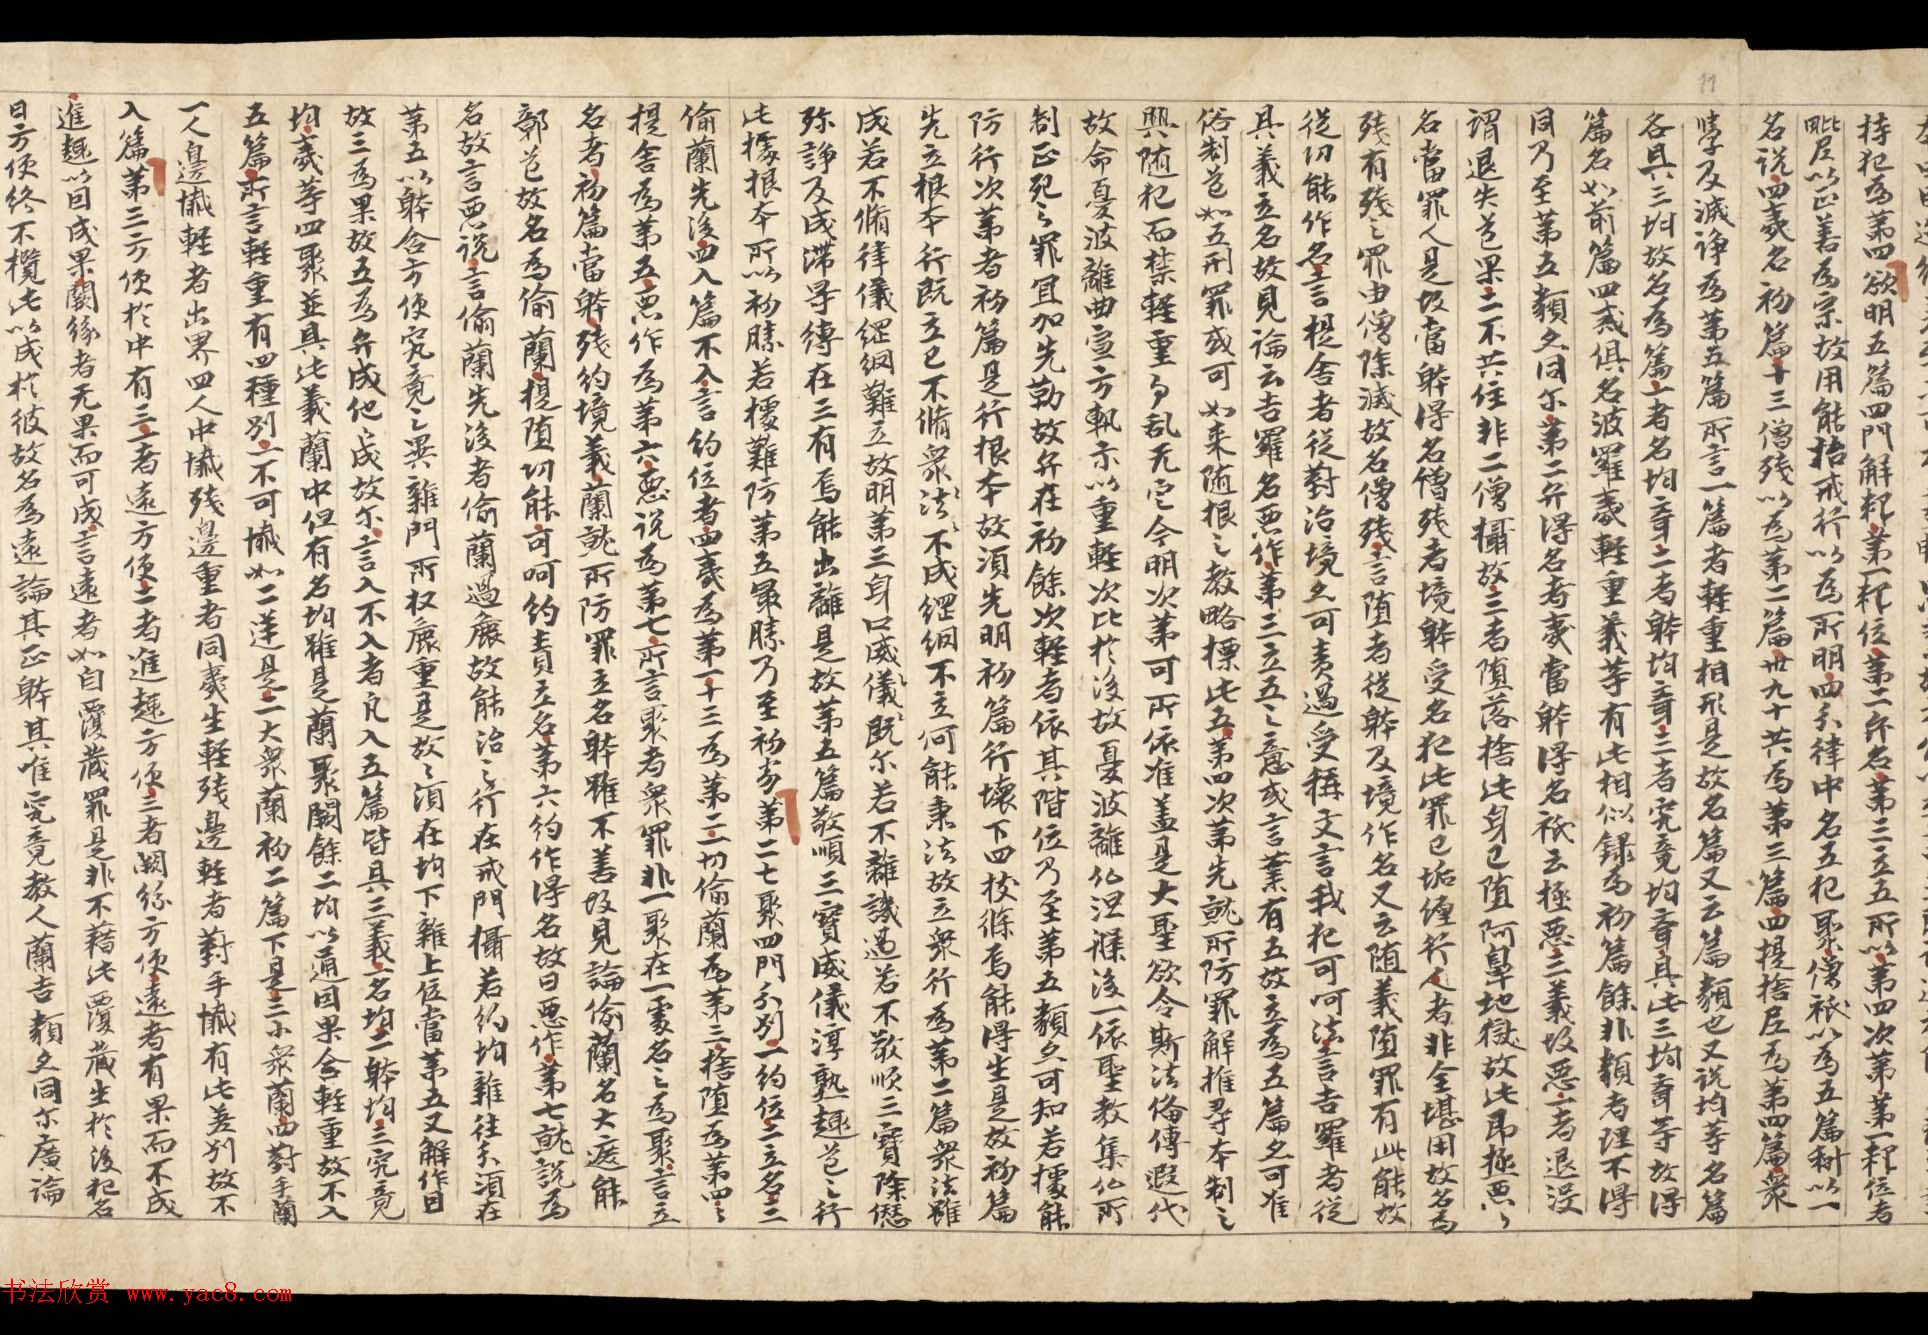 11
持犯為第四欲明五篇四門解釋第一釋位第二弁名第三立五所以第四次第第一釋位者
毗尼以止善為宗故用能持戒行以為所明四分律中名五犯聚僧祇以為五篇科以一
名說四戔名初篇十三僧殘以為第二篇卅九十共為第三篇四提捨尼為第四篇衆
學及滅諍為第五篇所言一篇者輕重相形是故名篇又云篇類也又說均等名篇
各具三均故名為篇一者名均齊二者躰均齊三者究竟均齊具此三均齊等故得
篇名如前篇四戔俱名波羅戔輕重義等有此相似錄為初篇餘非類者理不得
同乃至第五類之同尔第二弁得名者戔當躰得名祇云極惡三義故惡一者退沒
謂退失道果二不共住非二僧攝故三者墮落捨此身已墮阿鼻地獄故此即極惡〻
名當罪人是故當躰得名僧殘者境躰受名犯此罪已垢纏行人者非全堪用故名為
殘有殘〻罪由僧除滅故名僧殘言墮者從躰及境作名又云隨義墮罪有此能故
從功能作名言提舍者從對治境之可責過受稱文言我犯可呵法言吉羅者從
具義立名故見論云吉羅名惡作第三立五〻意或言業有五故立為五篇之可准
俗制道如五刑罪或可如來隨根〻教略標此五第四次第先就所防罪解推尋本制〻
興隨犯而禁輕重多乱无定今明次第可所依准盖是大聖欲令斯法俻傳遐代
故命憂波離曲宣方軌示以重輕次比於後故憂波離仏涅槃後一依聖教集仏所
制正犯〻罪宜加先勒故弁在初餘次輕者依其階位乃至第五類之可知若據能
防行次第者初篇是行根本故須先明初篇行壞下四枝條焉能得生是故初篇
先立根本行既立已不脩衆法不成綱網不立何能秉法故立衆行為第二篇衆法雖
成若不脩律儀綱網難立故明第三身口威儀既尔若不離譏過若不敬順三寶除僁
弥諍及成滯㝵縛在三有焉能出離是故第五篇敬順三寶威儀淳熟趣道〻行
此據根本所以初勝若據難防第五冣勝乃至初劣第二七聚四門分別一約位二立名三
偷蘭先後四入篇不入言約位者四戔為第一十三為第二一切偷蘭為第三捨墮為第四〻
提舍為第五惡作為第六惡說為第七所言聚者衆罪非一聚在一處名〻為聚言立
名者初篇當躰殘約境義蘭就所防罪立名躰雖不善故見論偷蘭名大遮能
鄣道故名為偷蘭提墮功能可呵約責立名第六約作得名故曰惡作第七就說為
名故言惡說言偷蘭先後者偷蘭過麁故能治〻行在戒門攝若約均雜往分須在
第五以躰含方便究竟〻異雜門所收麁重是故〻須在均下雜上位當第五又解作日
故三為果故五為弁成他〻成故尔言入不入者凡入五篇皆具三義一名均二躰均三究竟
均戔等四聚並具此義蘭中但有名均雖是蘭聚闕餘二均以通因果含輕重故不入
五篇所言輕重有四種別一不可懺如二逆是二大衆蘭初二篇下是三小衆蘭四對手蘭
一人邊懺輕者出界四人中懺殘邊重者同戔生輕殘邊輕者對手懺有此差別故不
入篇第三方便於中有三一者遠方便二者進趣方便三者闕緣方便遠者有果而不成
進趣以因成果闕緣者无果而可成言遠者如自覆藏罪是非不藉此覆藏生於後犯名
曰方便終不攬此以成於彼故名為遠論其正躰其唯究竟教人蘭吉類之同尔廣論
书法欣赏 www.yac8.com